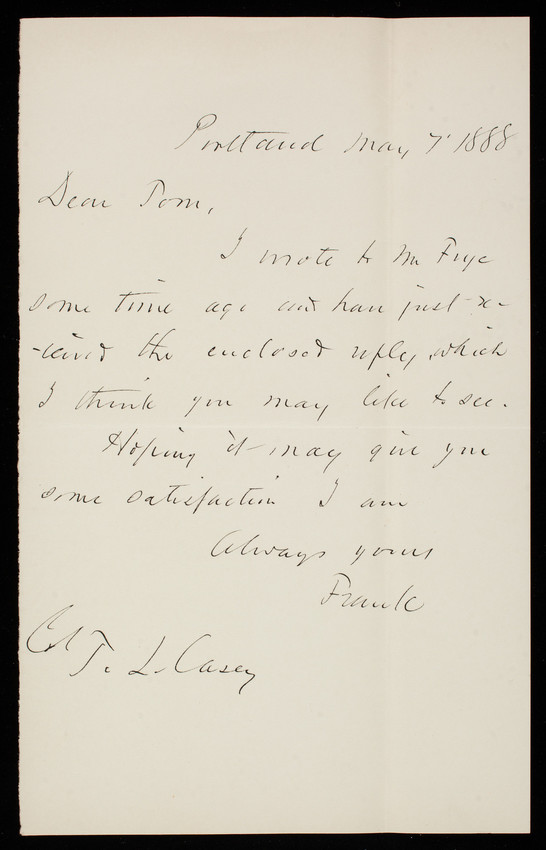 Portland May 7' 1888
Dear Tom,
I wrote to Mr Frye
some time ago and have just re-
-ceived the enclosed reply, which
I think you may like to see.
Hoping it may give you
some satisfaction I am
Always yours
Frank
Col T. L. Casey